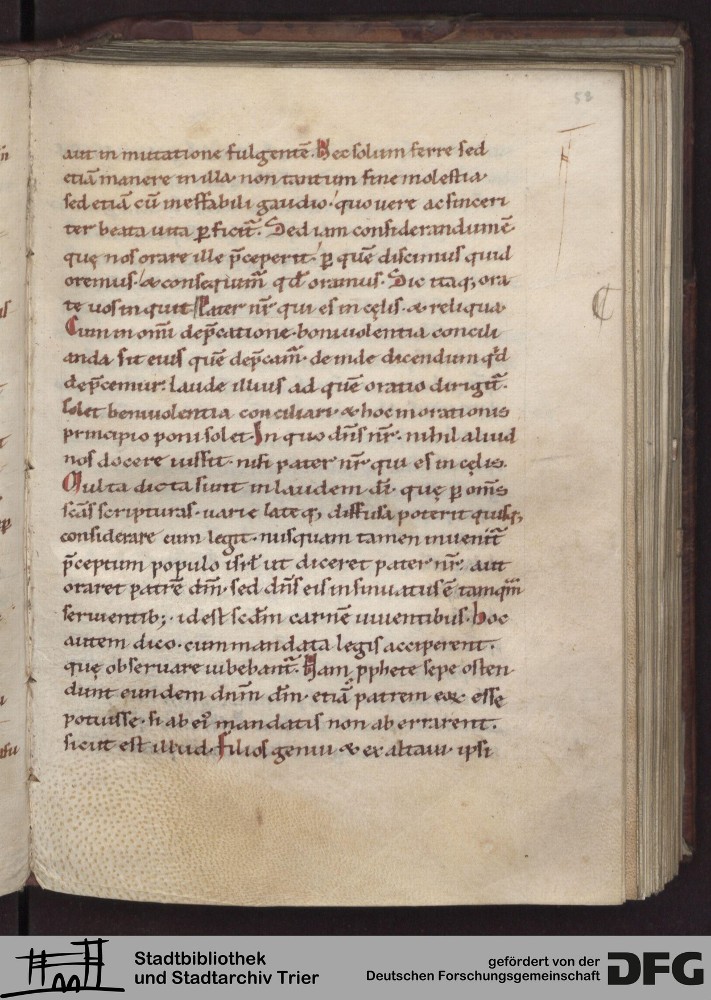 52
aut in mutatione fulgentē. Nec solum ferre sed
etiā manere in illa. non tantum sine molestia.
sed etiā cū ineffabili gaudio. quo vere ac sinceri
ter beata uita ꝑficit̄. Sed iam considerandum ē
quę nos orare ille p̄ceperit. ꝑ quē discimus quid
oremus. & consequim̄ qd̄ oramus. Sic itaq; ora
te uos inquit. Pater nr̄ qui es in cęlis. & reliqua.
Cum in omī dep̄catione. beniuolentia concili
anda sit eius quē dep̄cam̄. deinde dicendum qd̄
dep̄cemur. laude illius ad quē oratio dirigit̄.
solet beniuolentia conciliari & hoc in orationis
principio poni solet. In quo dn̄s nr̄. nihil aliud
nos docere iussit. nisi pater nr̄ qui es in cęlis.
Multa dicta sunt in laudem dī. quę ꝑ om̄s
scās scripturas. uarie lateq; diffusa poterit quisq;
considerare cum legit. nusquam tamen inuenit̄
p̄ceptum populo isrl̄ ut diceret pater nr̄. aut
oraret patrē dm̄. sed dn̄s eis insinuatus ē tamqm̄
seruientib; idest scdm̄ carnē uiuentibus. hoc
autem dico. cum mandata legis acciperent.
quę obseruare iubebant̄. Nam pphete sepe osten
dunt eundem dnm̄ dm̄. etiā patrem eoꝝ esse
potuisse. si ab ei᷒ mandatis non aberrarent.
sicut est illud. Filios genui & exaltaui. ipsi
Stadtbibliothek
und Stadtarchiv Trier
gefördert von der
Deutschen Forschungsgemeinschaft
DFG